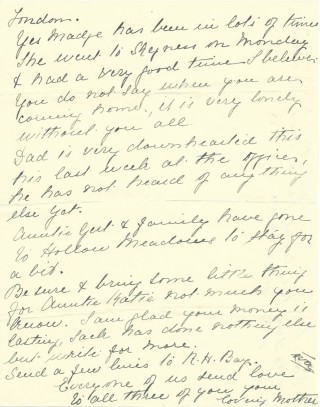 London.
Yes Madge has been in lots of times
She went to Skegness on Monday
& had a very good time I believe.
You do not say when you are
coming home, it is very lonely
without you all
Dad is very downhearted this
his last week at the Office,
he has not heard of anything
else yet.
Auntie Gert & family have gone
to Hollow Meadows to stay for
a bit.
Be sure & bring some little thing
for Auntie Katie not much you
know. I am glad your money is
lasting, Jack has done nothing else
but write for more.
Send a few lines to R. H. Bay.
Everyone of us send love
to all three of you your
Loving Mother